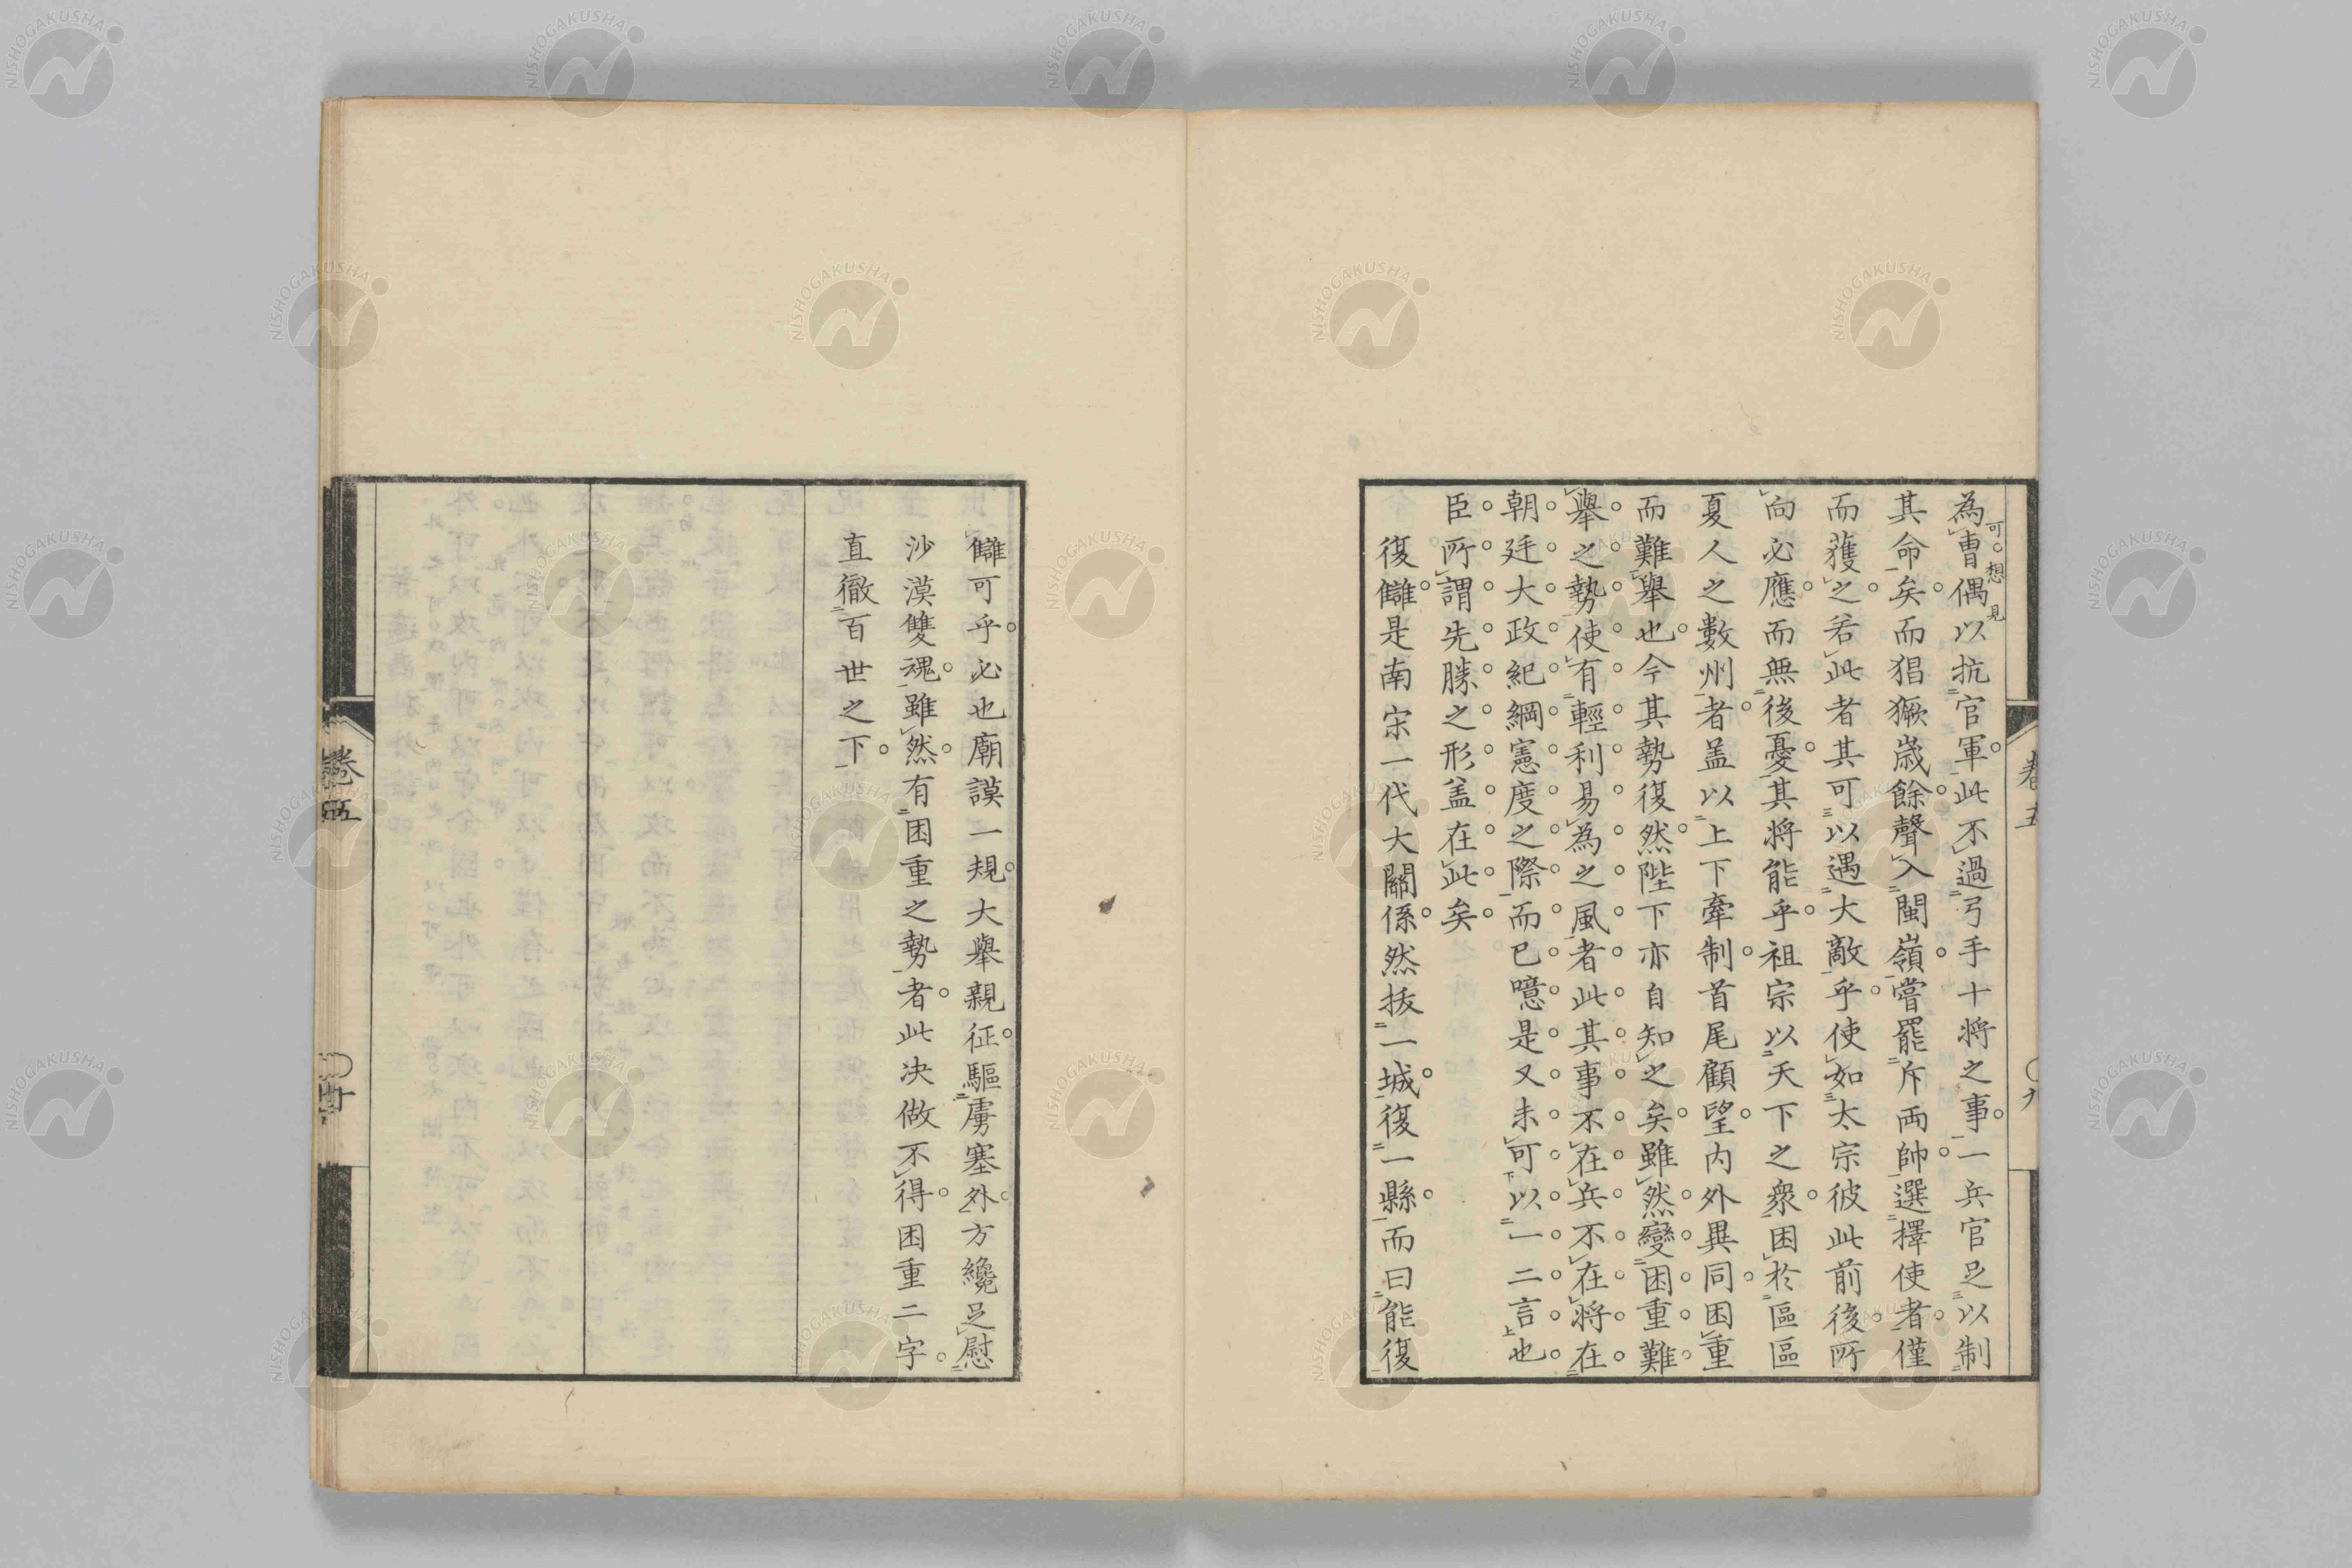 為曹偶以抗官軍此不過弓手十将之事一兵官足以制
可想見
其命矣而猖獗歳餘聲入閩嶺嘗罷斥両帥選擇使者僅
而獲之若此者其可以遇大敵乎使如太宗彼此前後所
向必應而無後憂其将能乎祖宗以天下之衆困於區區
夏人之數州者盖以上下牽制首尾顧望内外異同困重
而難舉也今其勢復然陛下亦自知之矣雖然變困重難
舉之勢使有輕利易為之風者此其事不在兵不在将在
朝廷大政紀綱憲度之際而已噫是又未可以一二言也
臣所謂先勝之形盖在此矣
復讎是南宋一代大關係然抜一城復一縣而曰能復
卷五
九
讎可乎必也廟謨一規大舉親征驅虜塞外方纔足慰
沙漠雙魂雖然有困重之勢者此决做不得困重二字
直徹百世之下
卷五
廿
NISHOGAKUSHA